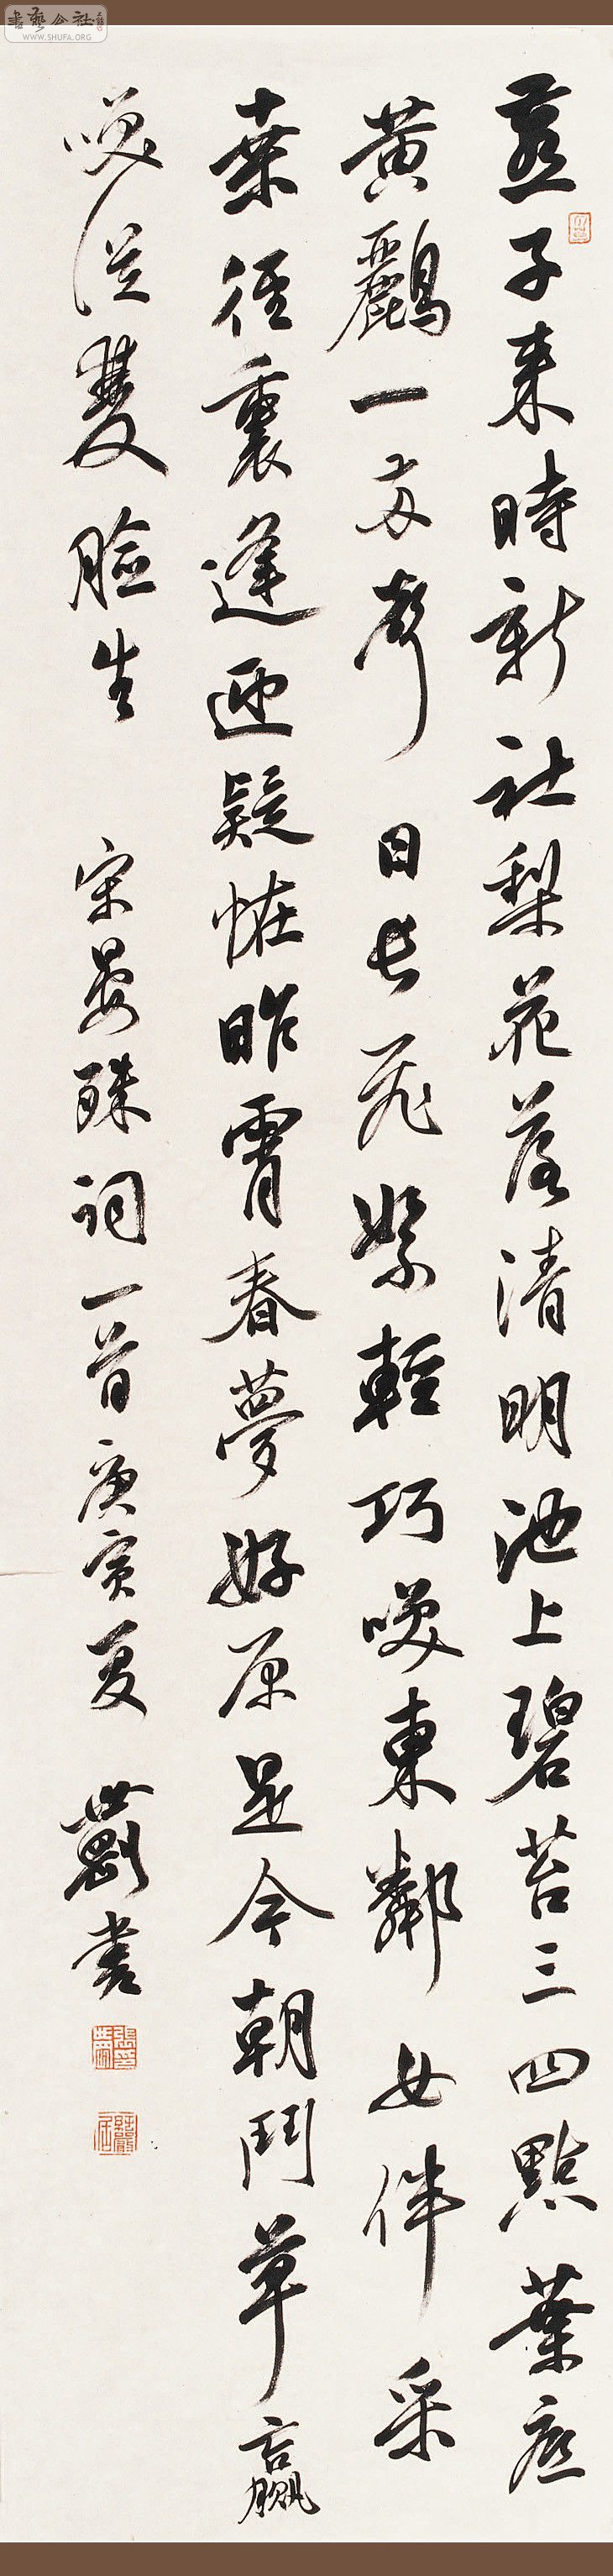 書藝公社
WWW.SHUFA.ORG
燕子来時新社梨花落清明池上碧苔三四點葉底
黄鸝一两聲日長飛絮輕巧咲東鄰女伴采
桒徑裏逢迎疑怪昨宵春夢好原是今朝鬥草贏
咲從雙臉生 宋晏殊詞一首庚寅夏 書